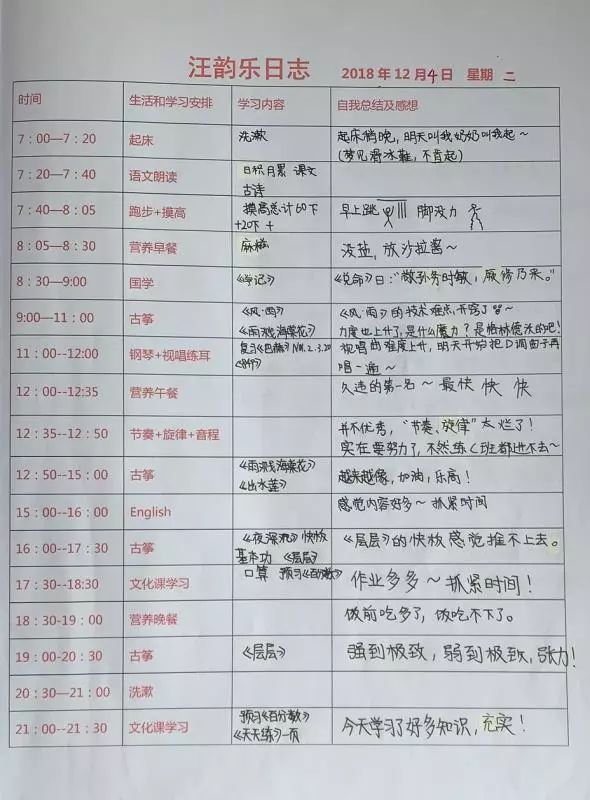 汪韵乐日志 2018年12月4日 星期二
时间 生活和学习安排 学习内容 自我总结及感想
7：00—7：20 起床 洗漱 起床稍晚，明天叫我奶奶叫我起～
(梦见滑冰鞋，不肯起)
7：20—7：40 语文朗读 日积月累 课文
古诗
7：40—8：05 跑步+摸高 摸高总计60下 早上跳 脚没力
+20下 +
8：05—8：30 营养早餐 麻糍 没盐，放沙拉酱～
8：30—9:00 国学 《学记》 《兑命》曰："敬孙务时敏，厥修乃来。"
9:00—11：00 古筝 《风·雨》 《风·雨》的技术难点，开窍了
《雨溅海棠花》 力度也上升了，是什么魔力？是格林德沃的吧！
11：00--12:00 钢琴+视唱练耳 复习《巴赫》NM.2.3.20 视唱曲难度上升，明天开始把D调曲子再
唱一遍～
12：00--12:35 营养午餐 久违的第一名～ 最快 快 快
12：35--12：50 节奏+旋律+音程 并不优秀，"节奏、旋律"太烂了！
实在要努力了，不然练C班都进不去～
12：50--15：00 古筝 《雨溅海棠花》 越来越像，加油，乐高！
《出水莲》
15：00--16：00 English 感觉内容好多～ 抓紧时间
16：00--17：30 古筝 《夜深沉》快板 《层层》的快板感觉推不上去。
基本功 《层层》
17：30--18:30 文化课学习 口算 预习《百分数》 作业多多～抓紧时间！
18：30-19：00 营养晚餐 饭前吃多了，饭吃不下了。
19：00-20：30 古筝 《层层》 强到极致，弱到极致，张力！
20：30—21：00 洗漱
21：00--21：30 文化课学习 预习《百分数》 今天学习了好多知识，充实！
《天天练》一页